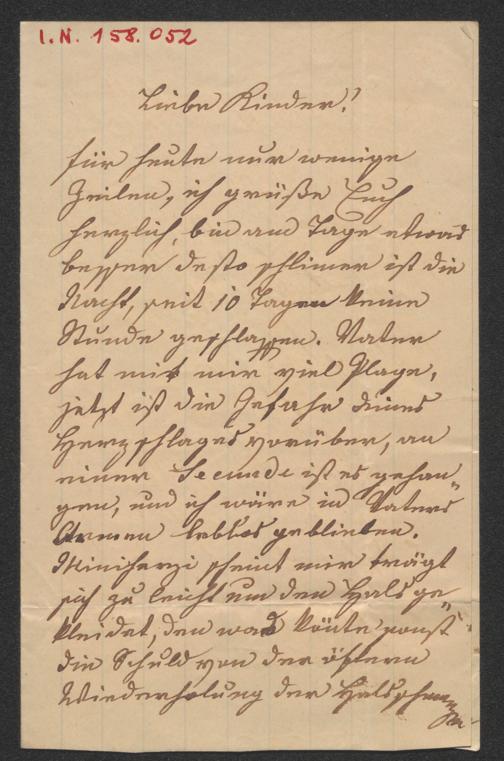 I.N. 158.052
Liebe Kinder!
für heute nur wenige
Zeilen, ich grüße Euch
herzlich, bin am Tage etwas
besser desto schlimer ist die
Nacht, seit 10 Tagen keine
Stunde geschlafen. Vater
hat mit mir viel Plage,
jetzt ist die Gefahr eines
Herzschlages vorüber, an
einer Secunde ist es gehan-
gen, und ich wäre in Vaters
Armen leblos geblieben.
Miniherzi scheint mir trägt
sich zu leicht um den Hals ge-
kleidet, den was könte sonst
die Schuld von der öftern
Wiederholung der Halsschmer-
zen